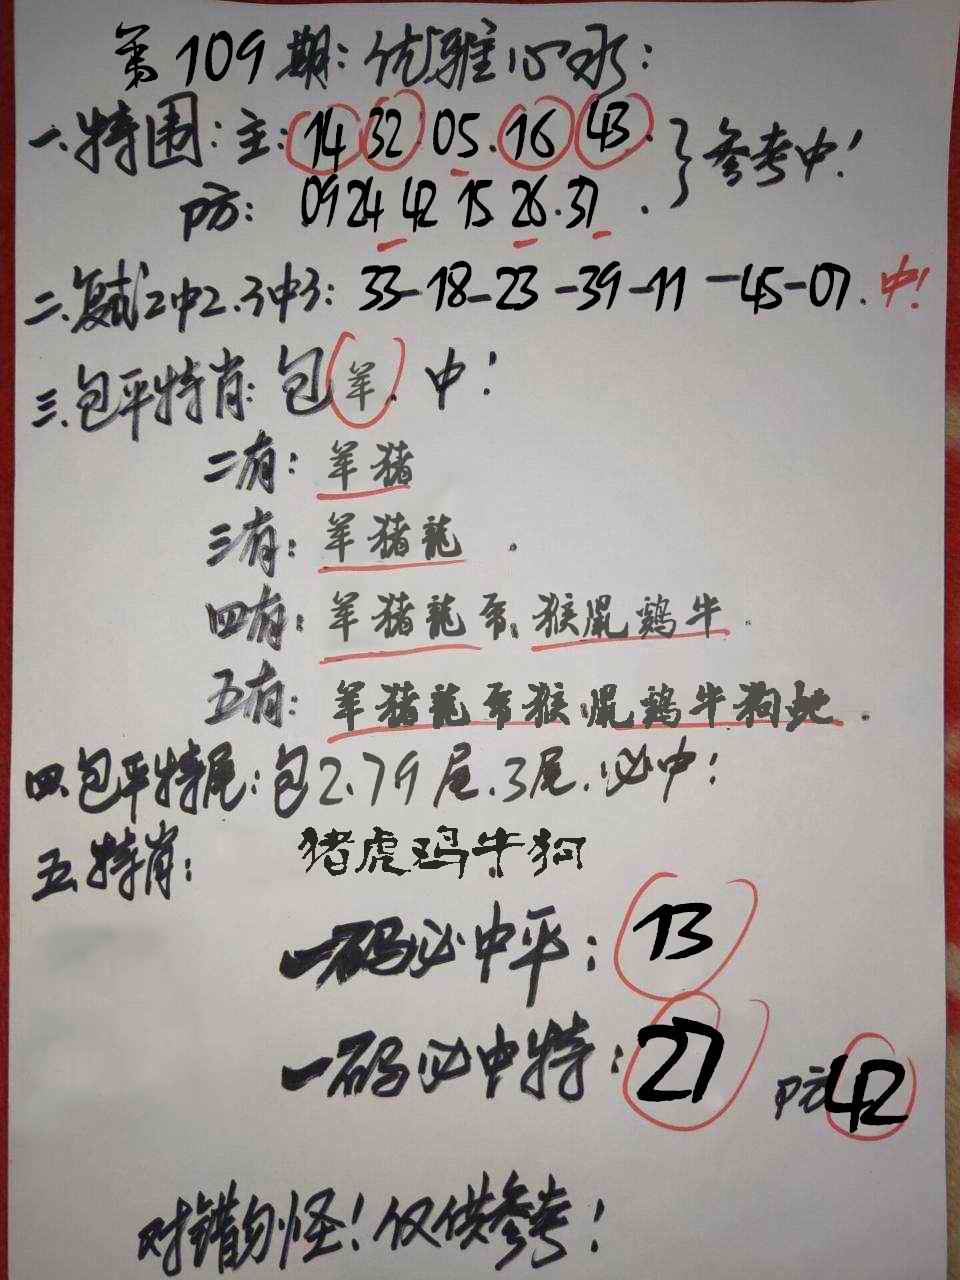 第109期:优雅心水:
一.特围:主:14 32 05.16 43.
参考中!
防:09 24 42 15 26.37.
二.复式2中2.3中3:33-18-23-39-11-45-07.中!
三.包平特肖:包羊.中!
二有:羊猪
三有:羊猪龍.
四有:羊猪龍 猴鼠鷄牛.
五有:羊猪龍 猴鼠鷄牛狗蛇.
四.包平特尾:包2.79尾.3尾.必中!
五.特肖: 猪虎鸡牛狗
一码必中平:13
一码必中特:27 防42
对错勿怪!仅供参考!